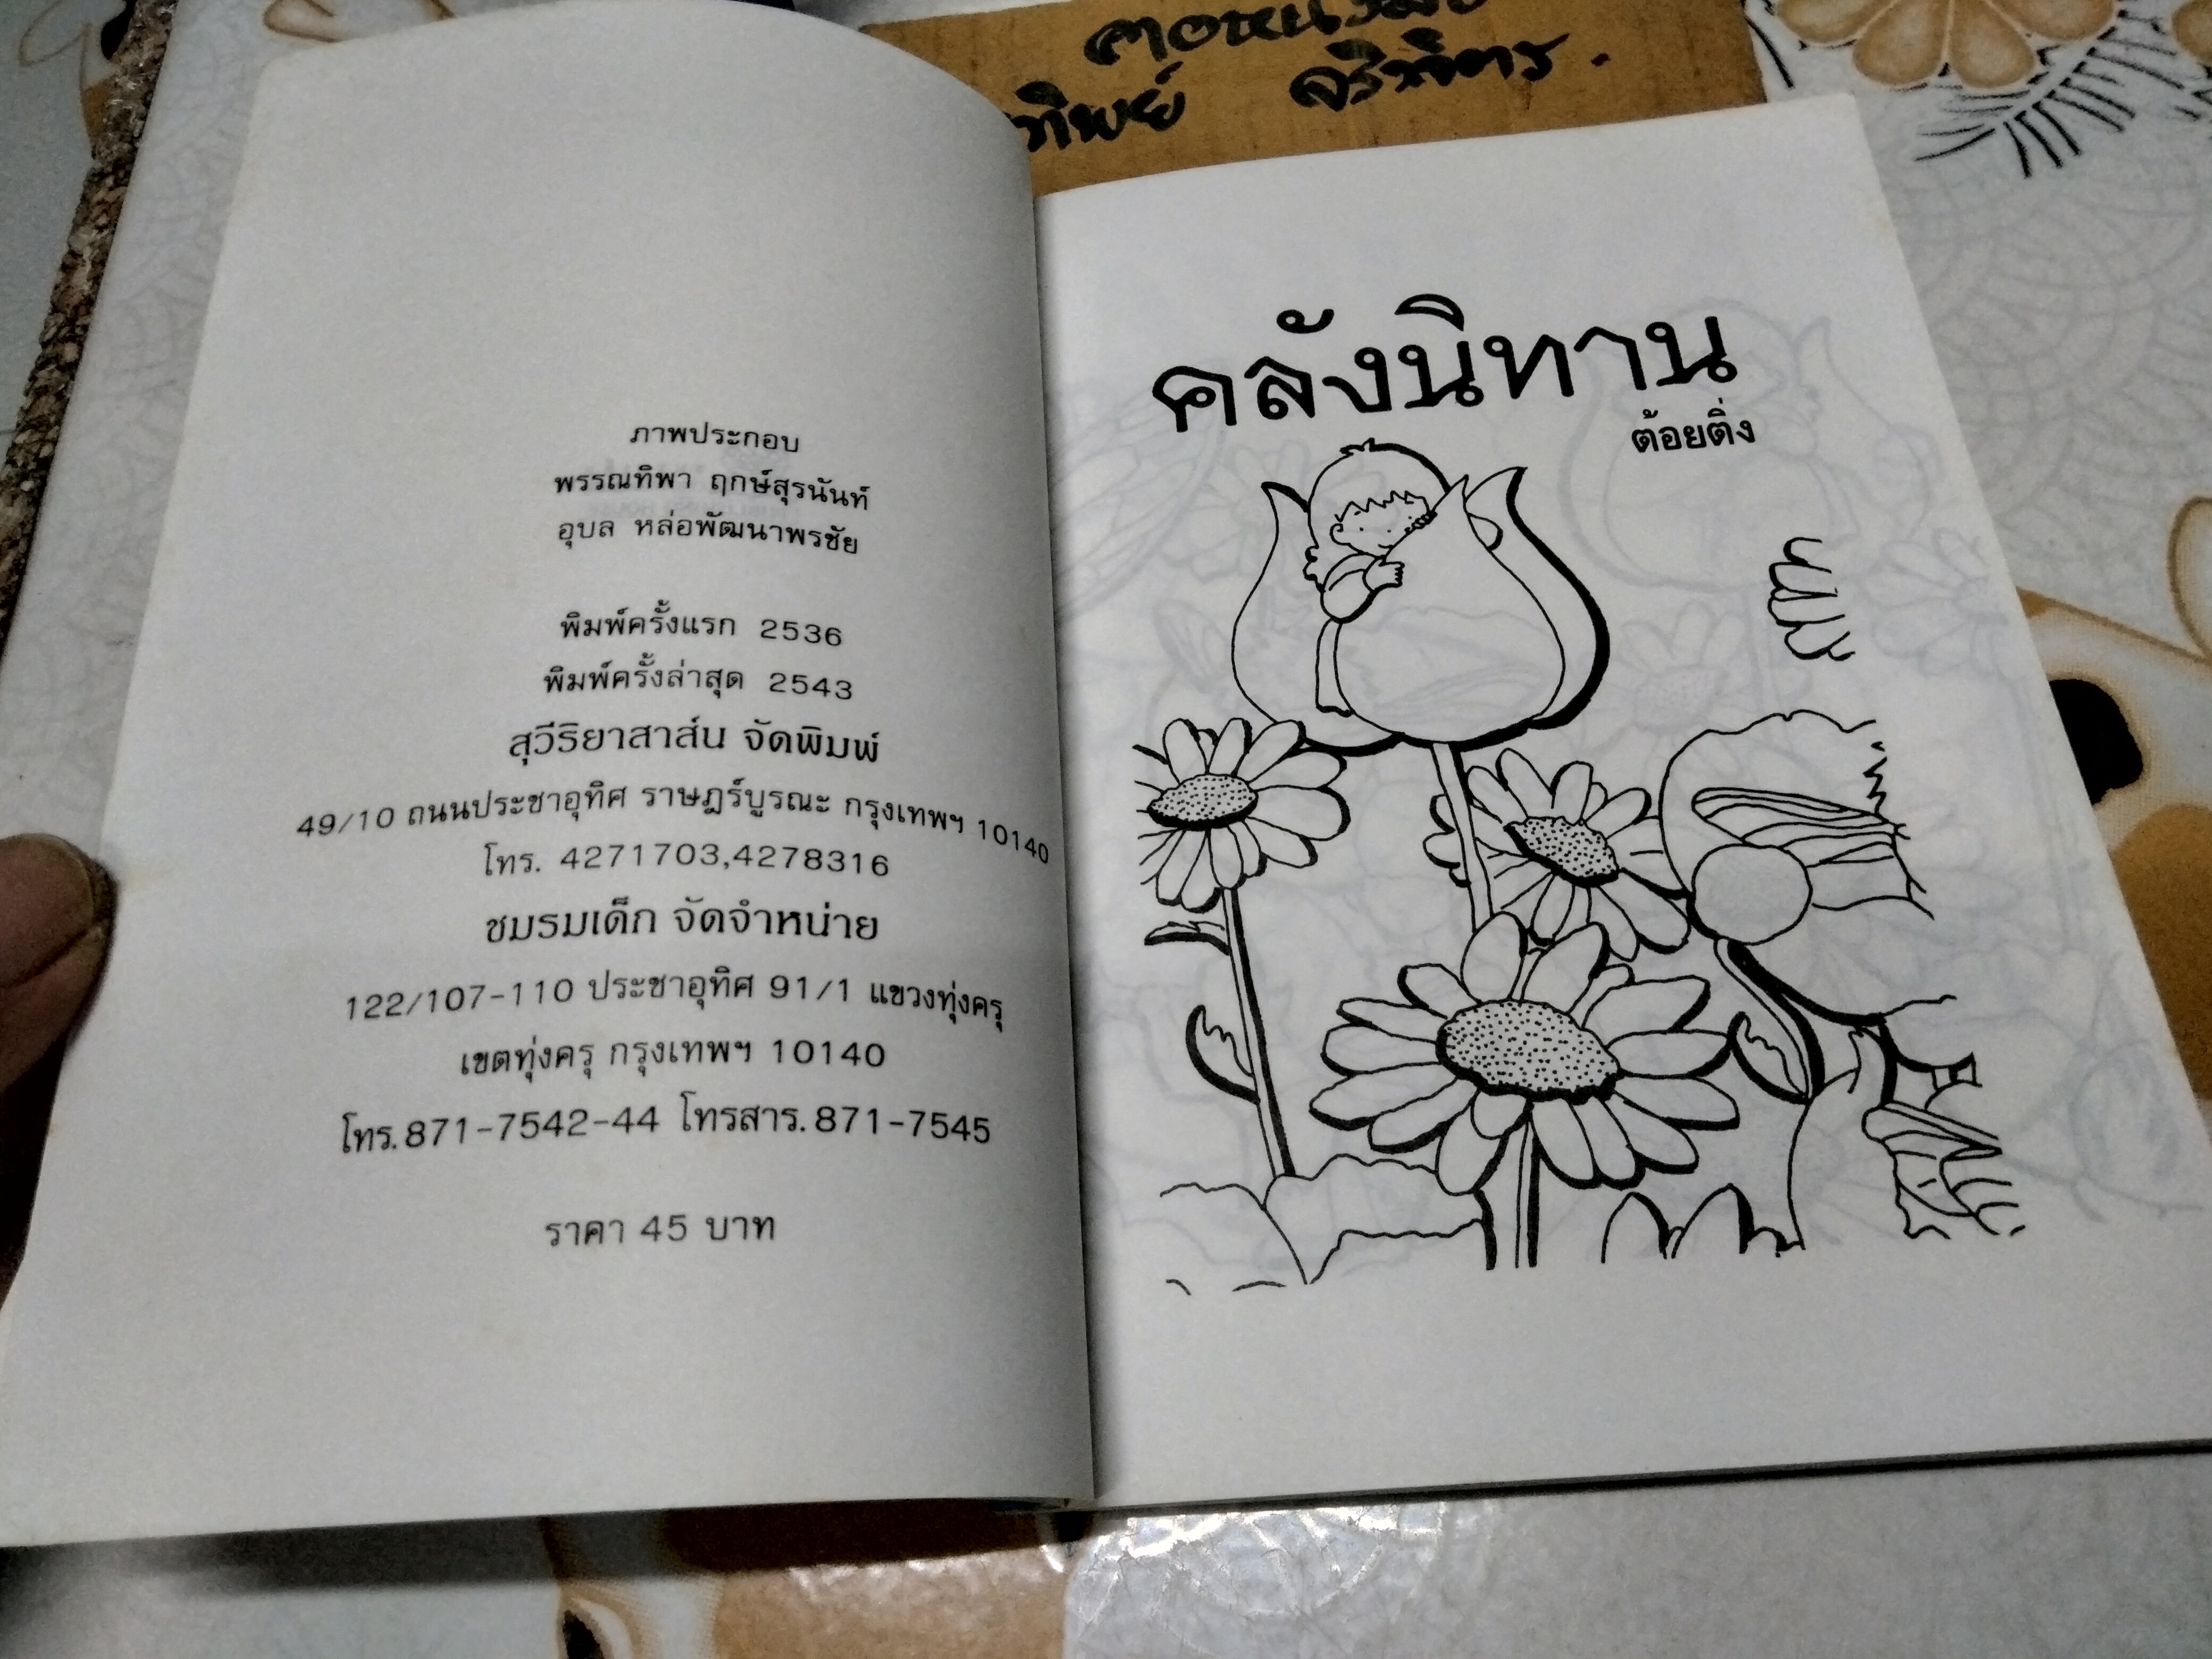 ทิพย์
ภาพประกอบ
พรรณทิพา ฤกษ์สุรนันท์
อุบล หล่อพัฒนาพรชัย
พิมพ์ครั้งแรก 2536
พิมพ์ครั้งล่าสุด 2543
สุวีริยาสาส์น จัดพิมพ์
49/10 ถนนประชาอุทิศ ราษฎร์บูรณะ กรุงเทพฯ 10140
โทร. 4271703,4278316
ชมรมเด็ก จัดจำหน่าย
122/107-110 ประชาอุทิศ 91/1 แขวงทุ่งครุ
เขตทุ่งครุ กรุงเทพฯ 10140
โทร.871-7542-44 โทรสาร.871-7545
ราคา 45 บาท
คลังนิทาน
ต้อยติ่ง